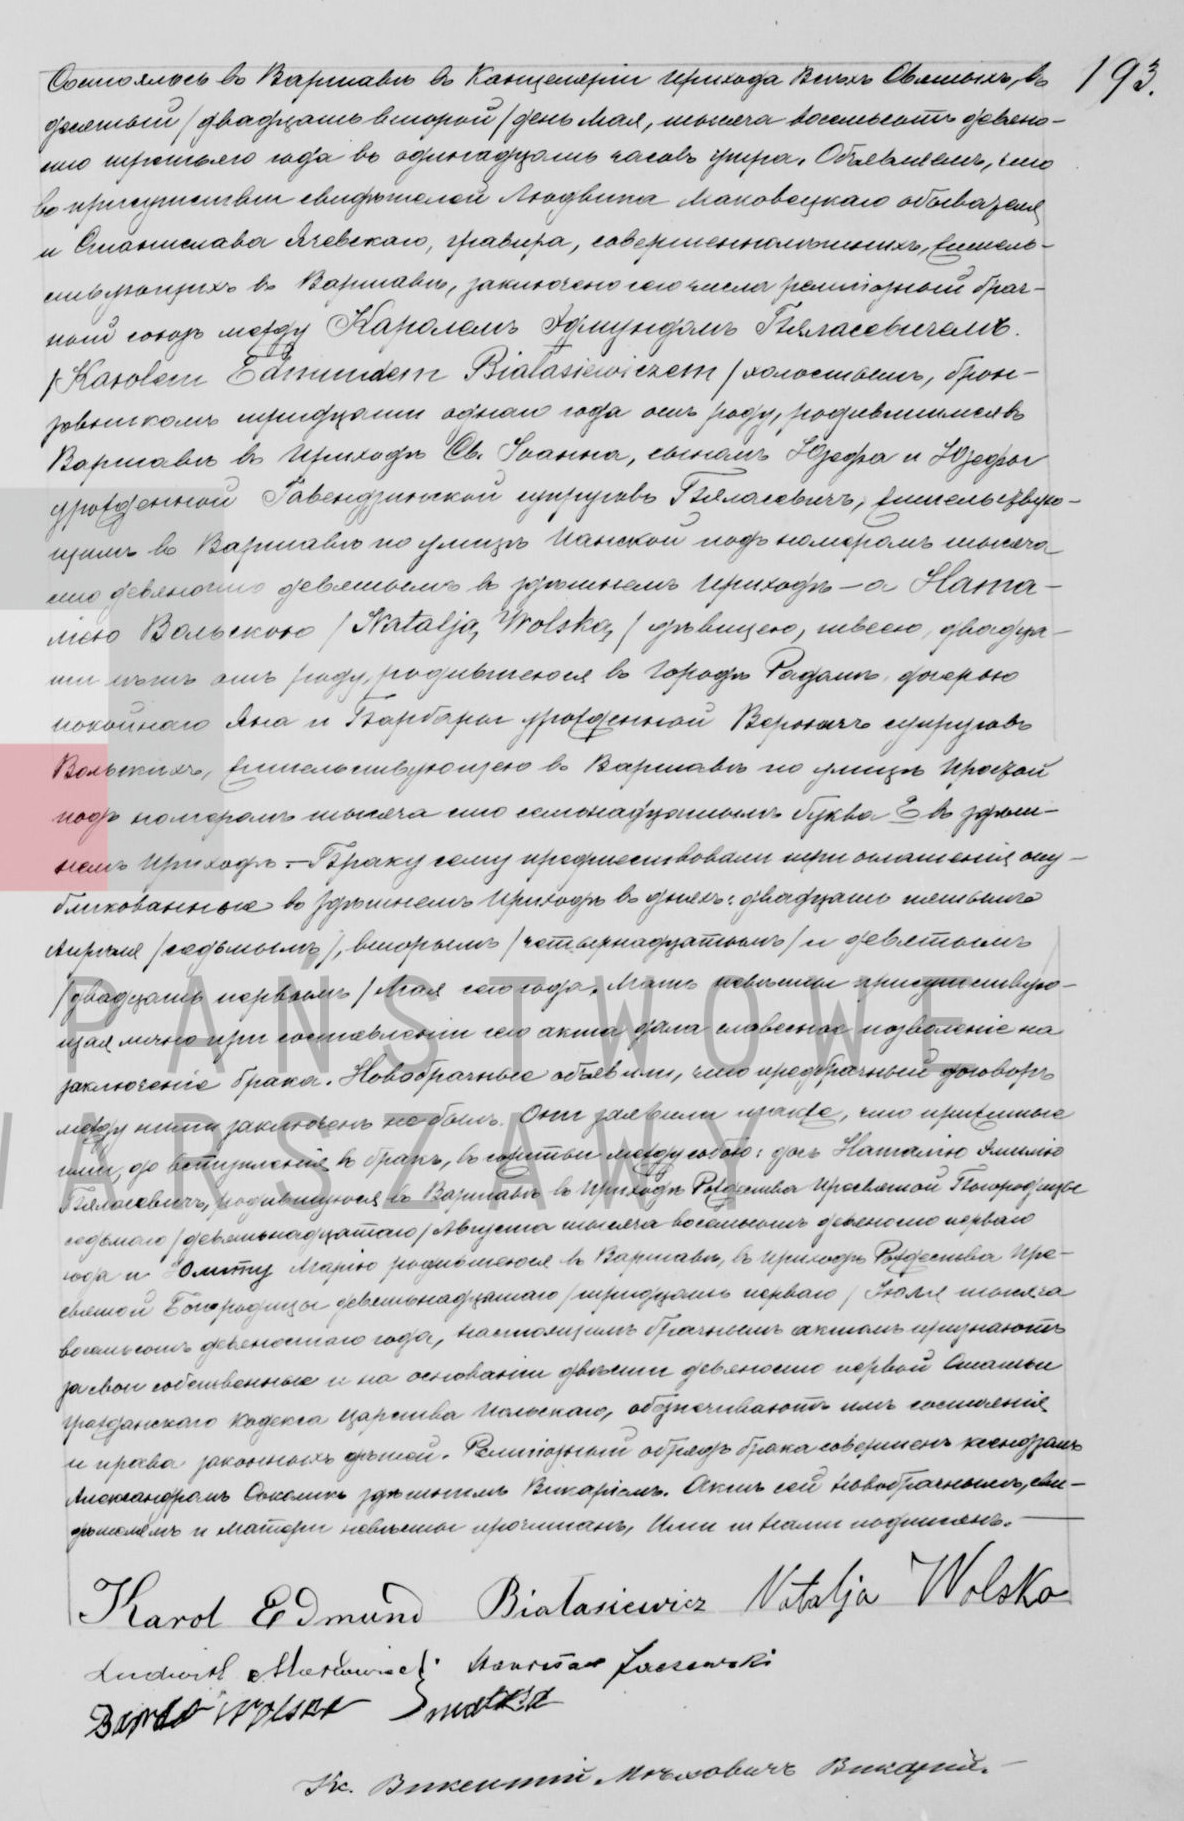 193.
Состоялось въ Варшавѣ въ Канцеляріи прихода Всѣхъ Святыхъ, въ
десятый /двадцать второй/ день Мая, тысяча восемьсотъ девяно-
сто третьяго года въ одинадцать часовъ утра. Объявляемъ, что
въ присутствіи свидѣтелей Людвика Маковецкаго обывателя
и Станислава Ячевскаго, гравера, совершеннолѣтнихъ, житель-
ствующихъ въ Варшавѣ, заключенъ сего числа религіозный брач-
ный союзъ между Каролемъ Эдмундомъ Бяласевичемъ
/Karolem Edmundem Białasiewiczem/ холостымъ, брон-
зовникомъ тридцати одного года отъ роду, родившимся въ
Варшавѣ въ приходѣ Св. Іоанна, сыномъ Юзефа и Юзефы
урожденной супруговъ Бяласевичъ, жительствую-
щимъ въ Варшавѣ по улицѣ Панской подъ номеромъ тысяча
сто девяносто девятымъ въ здѣшнемъ приходѣ — а Ната-
лією Вольскою /Natalją Wolską/ дѣвицею, швеею, двадца-
ти лѣтъ отъ роду, родившеюся въ городѣ Радомѣ, дочерью
покойнаго Яна и Барбары урожденной супруговъ
Вольскихъ, жительствующею въ Варшавѣ по улицѣ Простой
подъ номеромъ тысяча сто семнадцатымъ буква Е въ здѣш-
немъ приходѣ. — Браку сему предшествовали три оглашенія, опу-
бликованныя въ здѣшнемъ приходѣ въ дняхъ: двадцать пятымъ
Апрѣля /седьмымъ/, вторымъ /четырнадцатымъ/ и девятымъ
/двадцать первымъ/ Мая сего года. Мать невѣсты присутствую-
щая лично при составленіи сего акта дала словесное позволеніе на
заключеніе брака. Новобрачные объявили, что предбрачный договоръ
между ними заключенъ не былъ. Они заявили также, что прижитые
ими, до вступленія въ бракъ, въ сожитіи между собою: дочь Наталію Эмилію
Бяласевичъ, родившуюся въ Варшавѣ въ приходѣ Рождества Пресвятой Богородицы
седьмаго /девятнадцатаго/ Августа тысяча восемьсотъ девяносто перваго
года и Юлиту Марію родившеюся въ Варшавѣ, въ приходѣ Рождества Пре-
святой Богородицы девятнадцатаго /тридцать перваго/ Іюля тысяча
восемьсотъ девяностаго года, настоящимъ брачнымъ актомъ признаютъ
за свои собственные и на основаніи двѣсти девяносто первой Статьи
Гражданскаго Кодекса Царства Польскаго, обезпечиваютъ имъ состоянія
и права законныхъ дѣтей. Религіозный обрядъ брака совершенъ ксендзомъ
Александромъ здѣшнимъ Викаріемъ. Актъ сей новобрачнымъ, сви-
дѣтелямъ и матери невѣсты прочитанъ, Ими и Нами подписанъ. —
Karol Edmund Białasiewicz Natalja Wolska
Ludwik Makowiecki Stanisław Jaczewski
Barbara Wolska matka
Кс. Викентій Викарій. —
PAŃSTWOWE
WARSZAWY